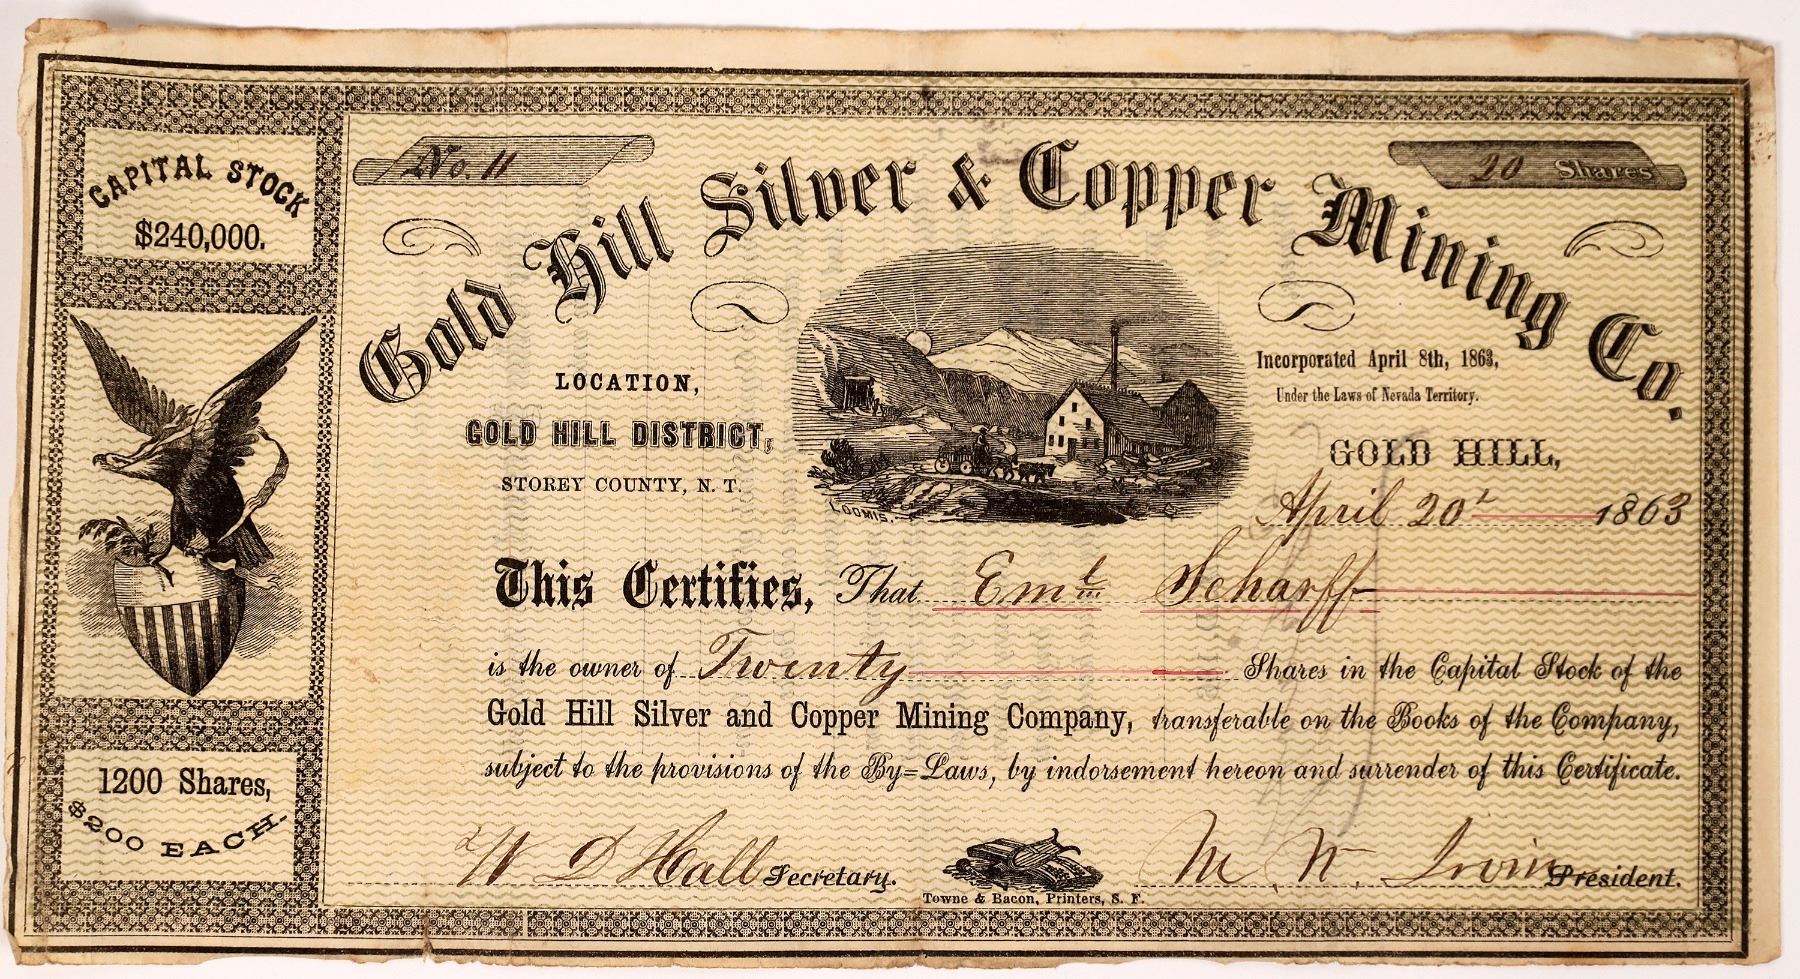 No. 11
20 Shares
CAPITAL STOCK
$240,000.
Gold Hill Silver & Copper Mining Co.
LOCATION,
GOLD HILL DISTRICT,
STOREY COUNTY, N. T.
LOOMIS.
Incorporated April 8th, 1863,
Under the Laws of Nevada Territory.
GOLD HILL,
April 20 1863
This Certifies, That Scharff
is the owner of Twenty Shares in the Capital Stock of the
Gold Hill Silver and Copper Mining Company, transferable on the Books of the Company,
subject to the provisions of the By=Laws, by indorsement hereon and surrender of this Certificate.
1200 Shares,
$200 EACH.
W D Hall Secretary.
M. W. Irvin President.
Towne & Bacon, Printers, S. F.